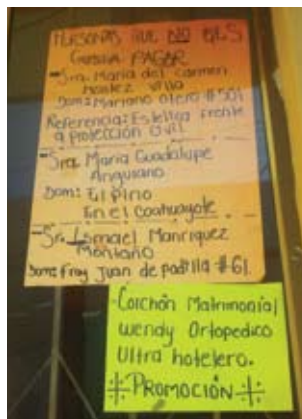 PERSONAS QUE NO LES
GUSTA PAGAR
- Sra. Maria del carmen
Montez Villa
Dom: Mariano Otero #501
Referencia: Estetica frente
a protección civil
- Sra. Maria Guadalupe
Anguiano
Dom: El pino
En el Coahuayote
- Sr. Ismael Manriquez
Montaño
Dom: Fray Juan de padilla #61
-Colchón Matrimonial
Wendy Ortopedico
Ultra hotelero.
PROMOCIÓN